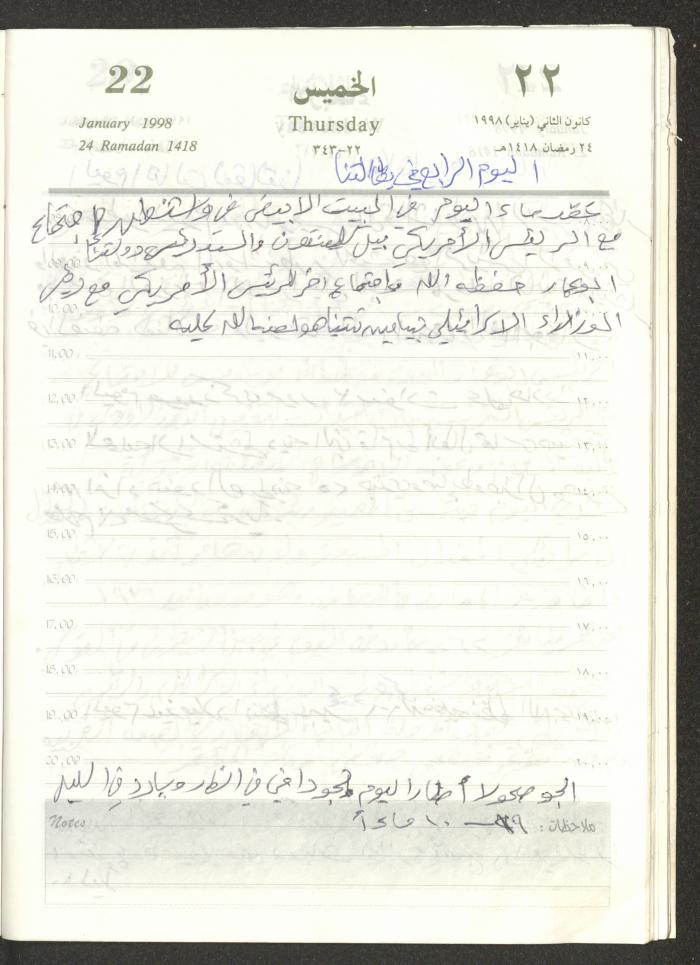 22 الخميس ٢٢
January 1998 Thursday كانون الثاني (يناير) ١٩٩٨
24 Ramadan 1418 ٢٢-٣٤٣ ٢٤ رمضان ١٤١٨هـ
اليوم الرابع في
عقد مساء اليوم في البيت الابيض في واشنطن اجتماع
مع الرئيس الأمريكي بيل كلينتون والسيد الرئيس
ابوعمار حفظه الله واجتماع اخر للرئيس الأمريكي مع رئيس
الوزراء الاسرائيلي بنيامين نتنياهو لعنة الله عليه
11,00 ١١,٠٠
12,00 ١٢,٠٠
13,00 ١٣,٠٠
14,00 ١٤,٠٠
15,00 ١٥,٠٠
16,00 ١٦,٠٠
17,00 ١٧,٠٠
18,00 ١٨,٠٠
19,00 ١٩,٠٠
20,00 ٢٠,٠٠
الجو صحو لا أمطار اليوم الجو دافئ في النهار وبارد في الليل
Notes ملاحظات: ١٠ مساءً